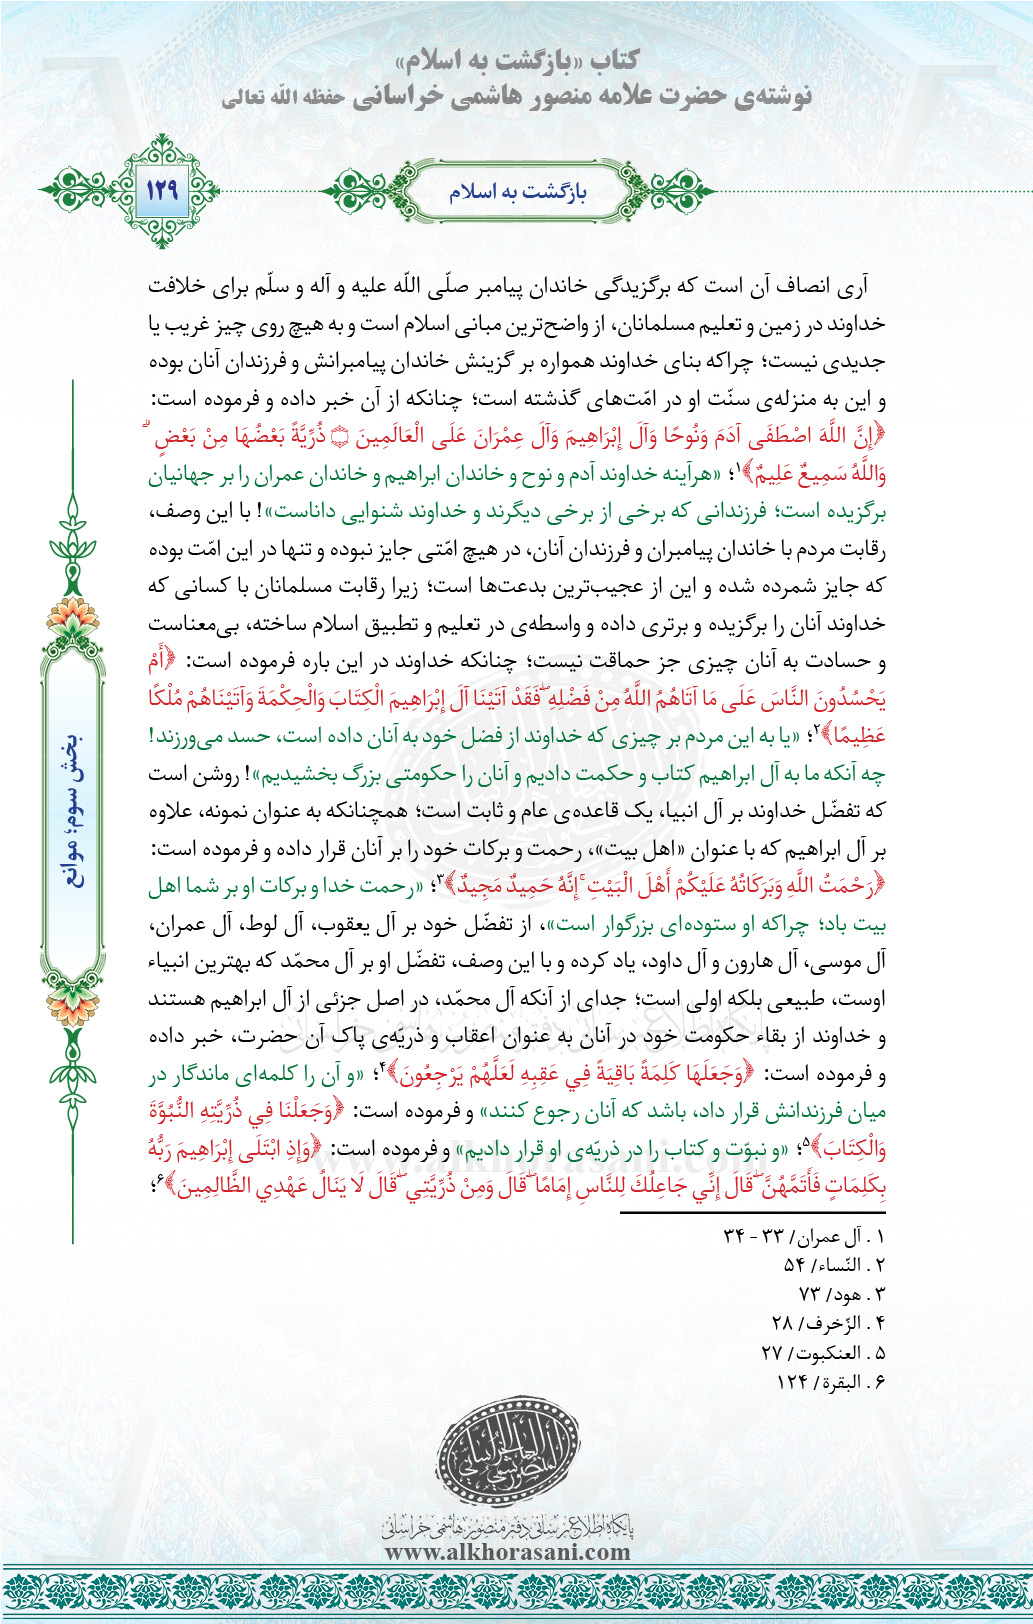 کتاب «بازگشت به اسلام»
نوشته‌ی حضرت علامه منصور هاشمی خراسانی حفظه الله تعالی
۱۲۹
بازگشت به اسلام
آری انصاف آن است که برگزیدگی خاندان پیامبر صلّی اللّه علیه و آله و سلّم برای خلافت
خداوند در زمین و تعلیم مسلمانان، از واضح‌ترین مبانی اسلام است و به هیچ روی چیز غریب یا
جدیدی نیست؛ چراکه بنای خداوند همواره بر گزینش خاندان پیامبرانش و فرزندان آنان بوده
و این به منزله‌ی سنّت او در امّت‌های گذشته است؛ چنانکه از آن خبر داده و فرموده است:
﴿إِنَّ اللَّهَ اصْطَفَى آدَمَ وَنُوحًا وَآلَ إِبْرَاهِيمَ وَآلَ عِمْرَانَ عَلَى الْعَالَمِينَ ۝ ذُرِّيَّةً بَعْضُهَا مِنْ بَعْضٍ ۗ
وَاللَّهُ سَمِيعٌ عَلِيمٌ﴾۱؛ «هرآینه خداوند آدم و نوح و خاندان ابراهیم و خاندان عمران را بر جهانیان
برگزیده است؛ فرزندانی که برخی از برخی دیگرند و خداوند شنوایی داناست»! با این وصف،
رقابت مردم با خاندان پیامبران و فرزندان آنان، در هیچ امّتی جایز نبوده و تنها در این امّت بوده
که جایز شمرده شده و این از عجیب‌ترین بدعت‌ها است؛ زیرا رقابت مسلمانان با کسانی که
خداوند آنان را برگزیده و برتری داده و واسطه‌ی در تعلیم و تطبیق اسلام ساخته، بی‌معناست
و حسادت به آنان چیزی جز حماقت نیست؛ چنانکه خداوند در این باره فرموده است: ﴿أَمْ
يَحْسُدُونَ النَّاسَ عَلَى مَا آتَاهُمُ اللَّهُ مِنْ فَضْلِهِ ۖ فَقَدْ آتَيْنَا آلَ إِبْرَاهِيمَ الْكِتَابَ وَالْحِكْمَةَ وَآتَيْنَاهُمْ مُلْكًا
عَظِيمًا﴾۲؛ «یا به این مردم بر چیزی که خداوند از فضل خود به آنان داده است، حسد می‌ورزند!
چه آنکه ما به آل ابراهیم کتاب و حکمت دادیم و آنان را حکومتی بزرگ بخشیدیم»! روشن است
که تفضّل خداوند بر آل انبیا، یک قاعده‌ی عام و ثابت است؛ همچنانکه به عنوان نمونه، علاوه
بر آل ابراهیم که با عنوان «اهل بیت»، رحمت و برکات خود را بر آنان قرار داده و فرموده است:
﴿رَحْمَتُ اللَّهِ وَبَرَكَاتُهُ عَلَيْكُمْ أَهْلَ الْبَيْتِ ۚ إِنَّهُ حَمِيدٌ مَجِيدٌ﴾۳؛ «رحمت خدا و برکات او بر شما اهل
بیت باد؛ چراکه او ستوده‌ای بزرگوار است»، از تفضّل خود بر آل یعقوب، آل لوط، آل عمران،
آل موسی، آل هارون و آل داود، یاد کرده و با این وصف، تفضّل او بر آل محمّد که بهترین انبیاء
اوست، طبیعی بلکه اولی است؛ جدای از آنکه آل محمّد، در اصل جزئی از آل ابراهیم هستند
و خداوند از بقاء حکومت خود در آنان به عنوان اعقاب و ذریّه‌ی پاک آن حضرت، خبر داده
و فرموده است: ﴿وَجَعَلَهَا كَلِمَةً بَاقِيَةً فِي عَقِبِهِ لَعَلَّهُمْ يَرْجِعُونَ﴾۴؛ «و آن را کلمه‌ای ماندگار در
میان فرزندانش قرار داد، باشد که آنان رجوع کنند» و فرموده است: ﴿وَجَعَلْنَا فِي ذُرِّيَّتِهِ النُّبُوَّةَ
وَالْكِتَابَ﴾۵؛ «و نبوّت و کتاب را در ذریّه‌ی او قرار دادیم» و فرموده است: ﴿وَإِذِ ابْتَلَى إِبْرَاهِيمَ رَبُّهُ
بِكَلِمَاتٍ فَأَتَمَّهُنَّ ۖ قَالَ إِنِّي جَاعِلُكَ لِلنَّاسِ إِمَامًا ۖ قَالَ وَمِنْ ذُرِّيَّتِي ۖ قَالَ لَا يَنَالُ عَهْدِي الظَّالِمِينَ﴾۶؛
بخش سوم؛ موانع
۱ . آل عمران/ ۳۳ - ۳۴
۲ . النّساء/ ۵۴
۳ . هود/ ۷۳
۴ . الزّخرف/ ۲۸
۵ . العنکبوت/ ۲۷
۶ . البقرة/ ۱۲۴
المنصور الهاشمي الخراساني
پایگاه اطلاع‌رسانی دفتر منصور هاشمی خراسانی
www.alkhorasani.com